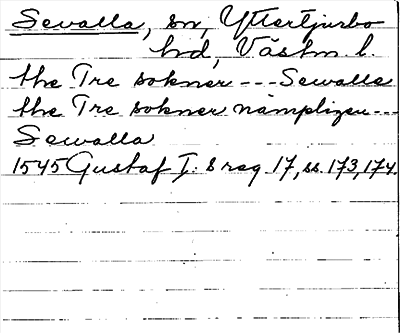 Sevalla, sn, Yttertjurbo
hd, Västm l.
the Tre sokner --- Sewalla
the Tre sokner nämpligen ---
Sewalla
1545 Gustaf I:s reg. 17, ss. 173, 174.